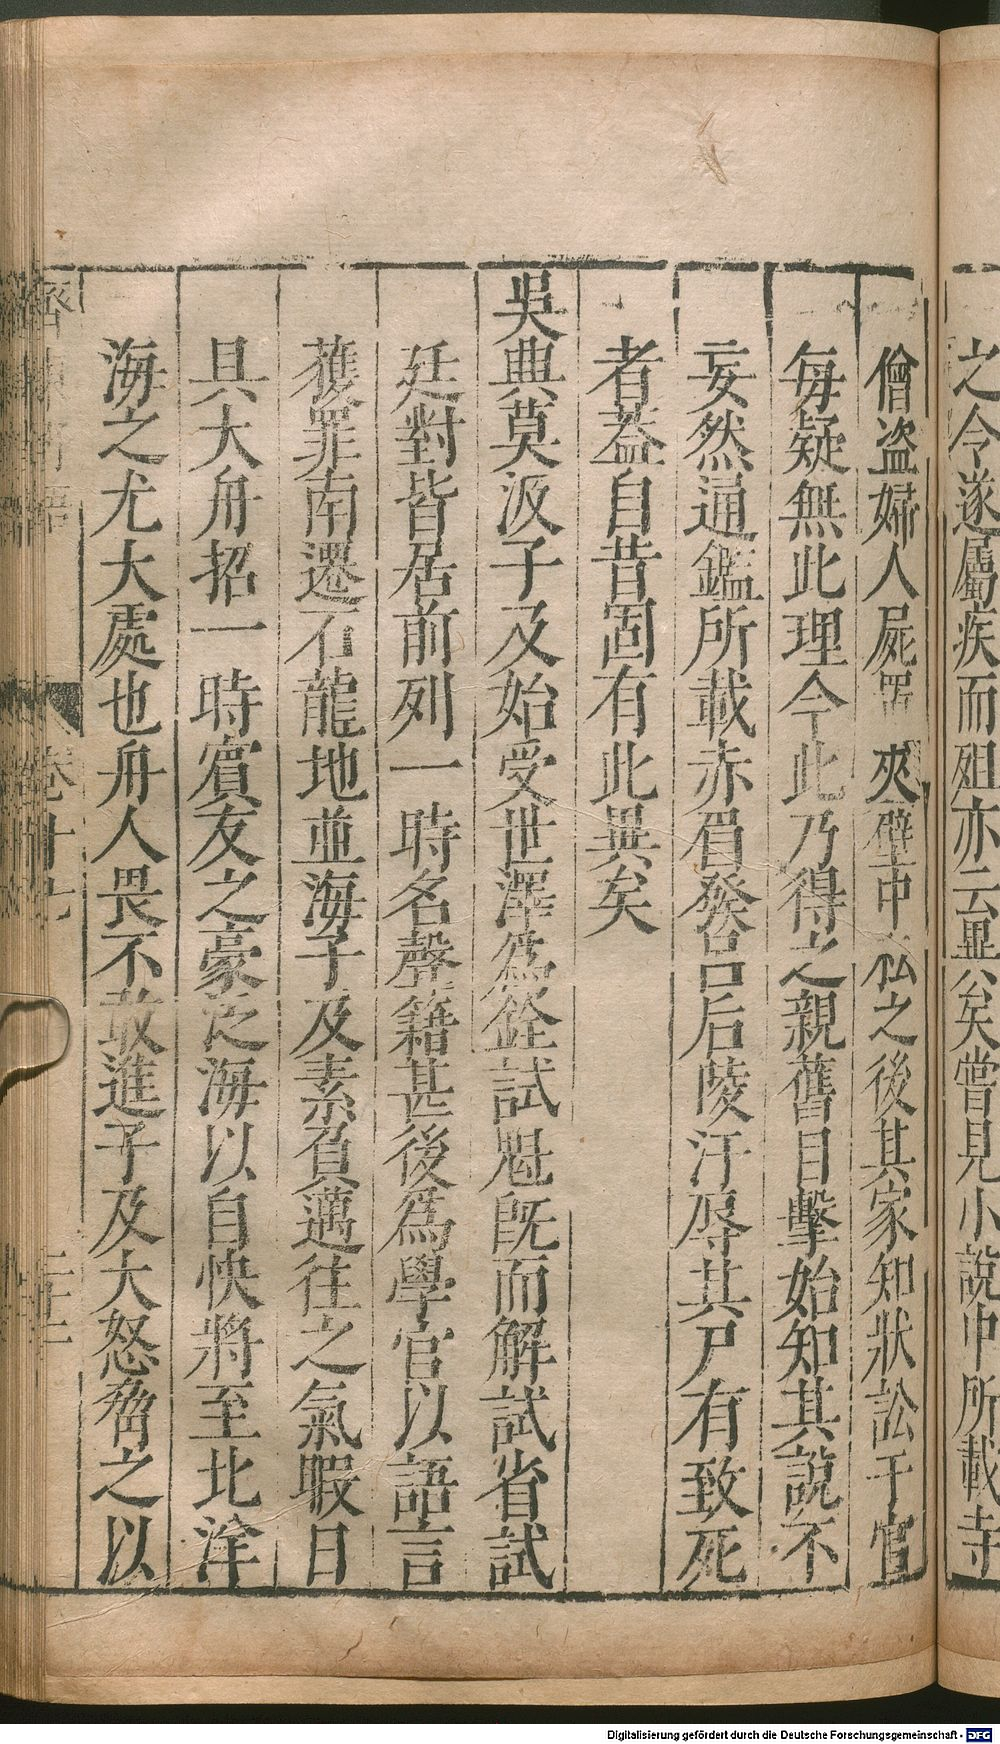 之令遂屬疾而殂亦云異矣嘗見小說中所載寺
僧盜婦人屍置夾壁中私之後其家知狀訟于官
每疑無此理今此乃得之親舊目擊始知其說不
妄然通鑑所載赤眉發呂后陵汙辱其尸有致死
者蓋自昔固有此異矣
吳興莫汲子及始受世澤為銓試魁旣而解試省試
廷對皆居前列一時名聲籍甚後為學官以語言
獲罪南遷石龍地並海子及素負邁往之氣暇日
具大舟招一時賓友之豪泛海以自快將至北洋
海之尤大處也舟人畏不敢進子及大怒脅之以
齊東野語
卷十七
Digitalisierung gefördert durch die Deutsche Forschungsgemeinschaft - DFG